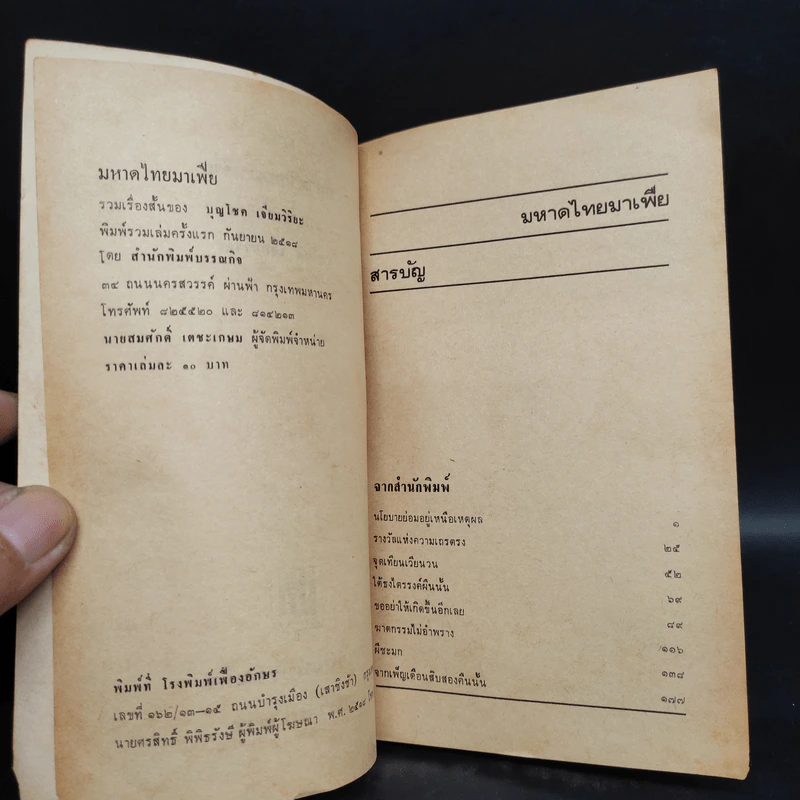 มหาดไทยมาเฟีย
รวมเรื่องสั้นของ บุญโชค เจียมวิริยะ
พิมพ์รวมเล่มครั้งแรก กันยายน ๒๕๑๘
โดย สำนักพิมพ์บรรณกิจ
๓๔ ถนนนครสวรรค์ ผ่านฟ้า กรุงเทพมหานคร
โทรศัพท์ ๘๒๕๕๒๐ และ ๘๑๔๒๑๓
นายสมศักดิ์ เตชะเกษม ผู้จัดพิมพ์จำหน่าย
ราคาเล่มละ ๑๐ บาท
พิมพ์ที่ โรงพิมพ์เฟื่องอักษร
เลขที่ ๑๖๒/๑๓-๑๕ ถนนบำรุงเมือง (เสาชิงช้า)
นายศรสิทธิ์ พิพิธรังษี ผู้พิมพ์ผู้โฆษณา พ.ศ. ๒๕๑๘
มหาดไทยมาเฟีย
สารบัญ
จากสำนักพิมพ์
นโยบายย่อมอยู่เหนือเหตุผล ๑
รางวัลแห่งความเถรตรง ๒๕
จุดเทียนเวียนวน ๕๒
ใต้ธงไตรรงค์ผืนนั้น ๖๙
ขออย่าให้เกิดขึ้นอีกเลย ๘๙
ฆาตกรรมไม่อำพราง ๑๑๖
ผีชะมก ๑๓๘
จากเพ็ญเดือนสิบสองคืนนั้น ๑๗๗